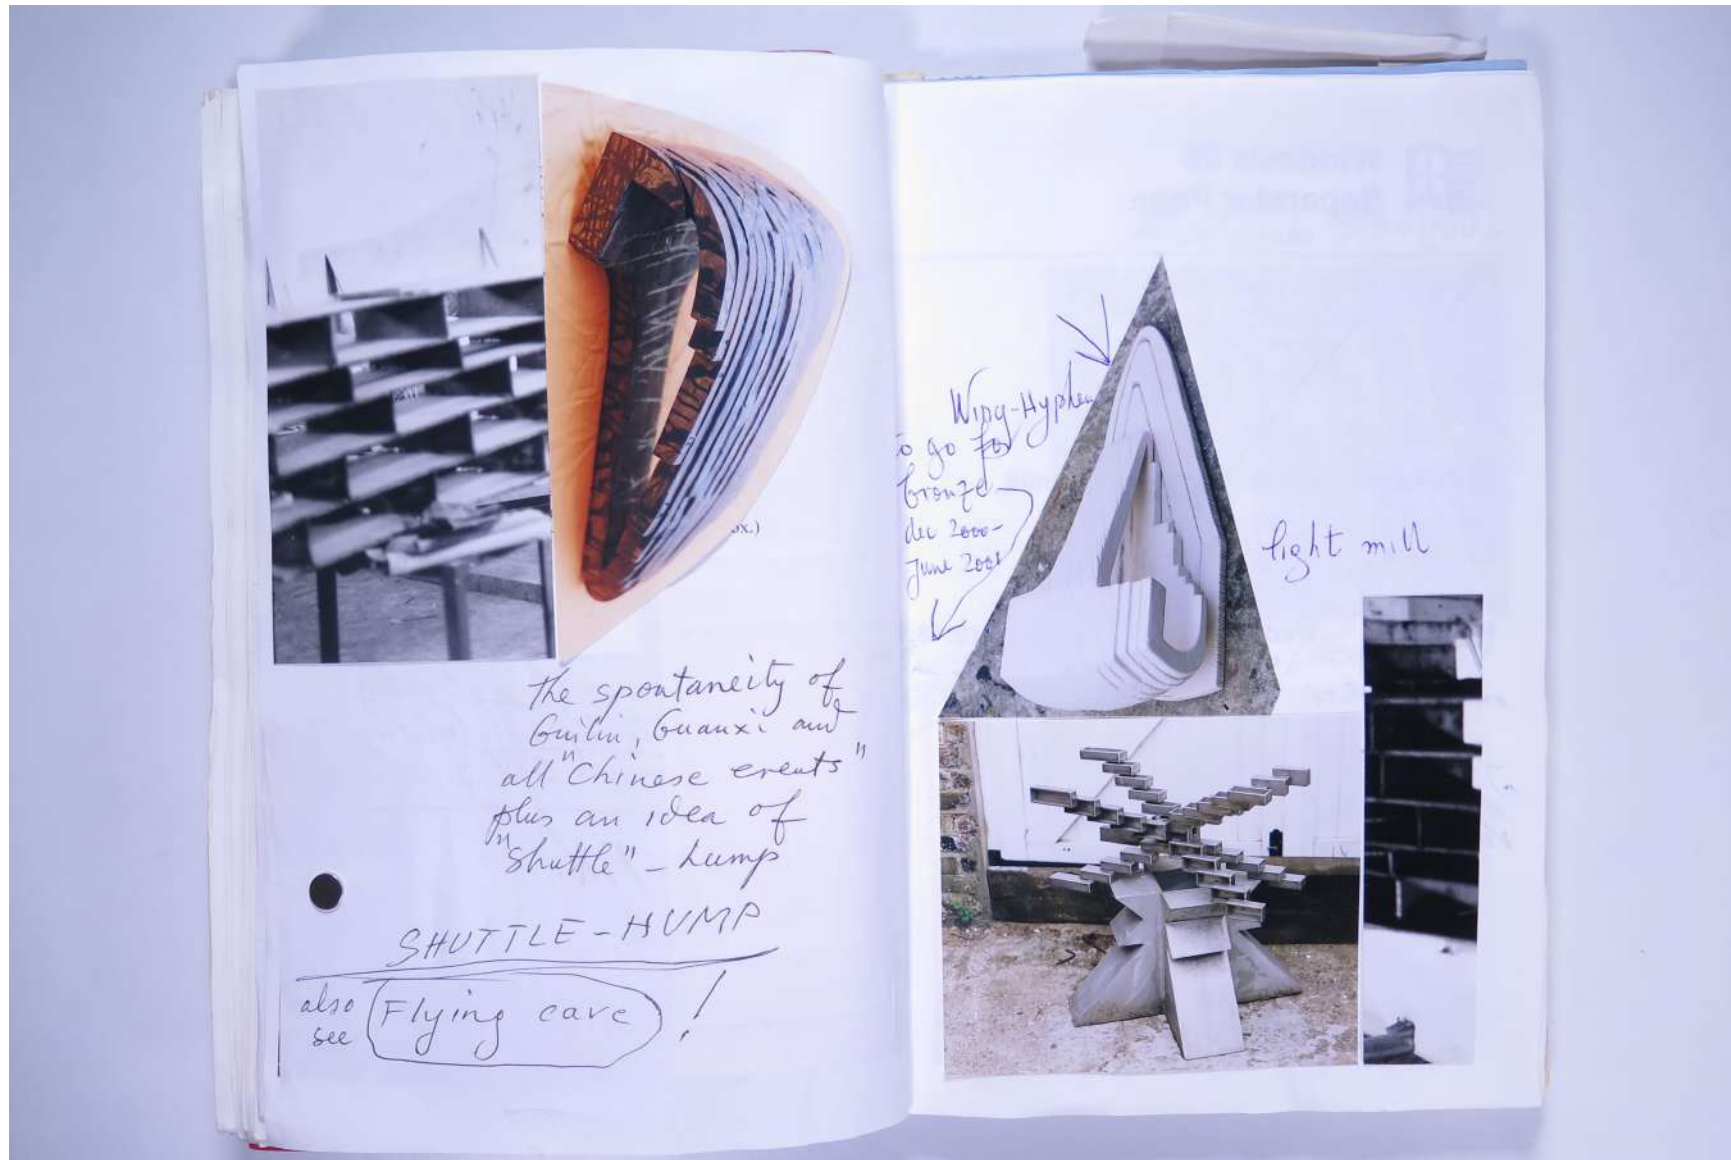 ox.)
the spontaneity of
Guilin, Guanxi and
all "Chinese events"
plus an idea of
"Shuttle" - hump
SHUTTLE - HUMP
also
see
Flying cave !
Wing-Hyphen
to go for
bronze
dec 2000-
June 2001
light mill
Windows 95
Separator Page